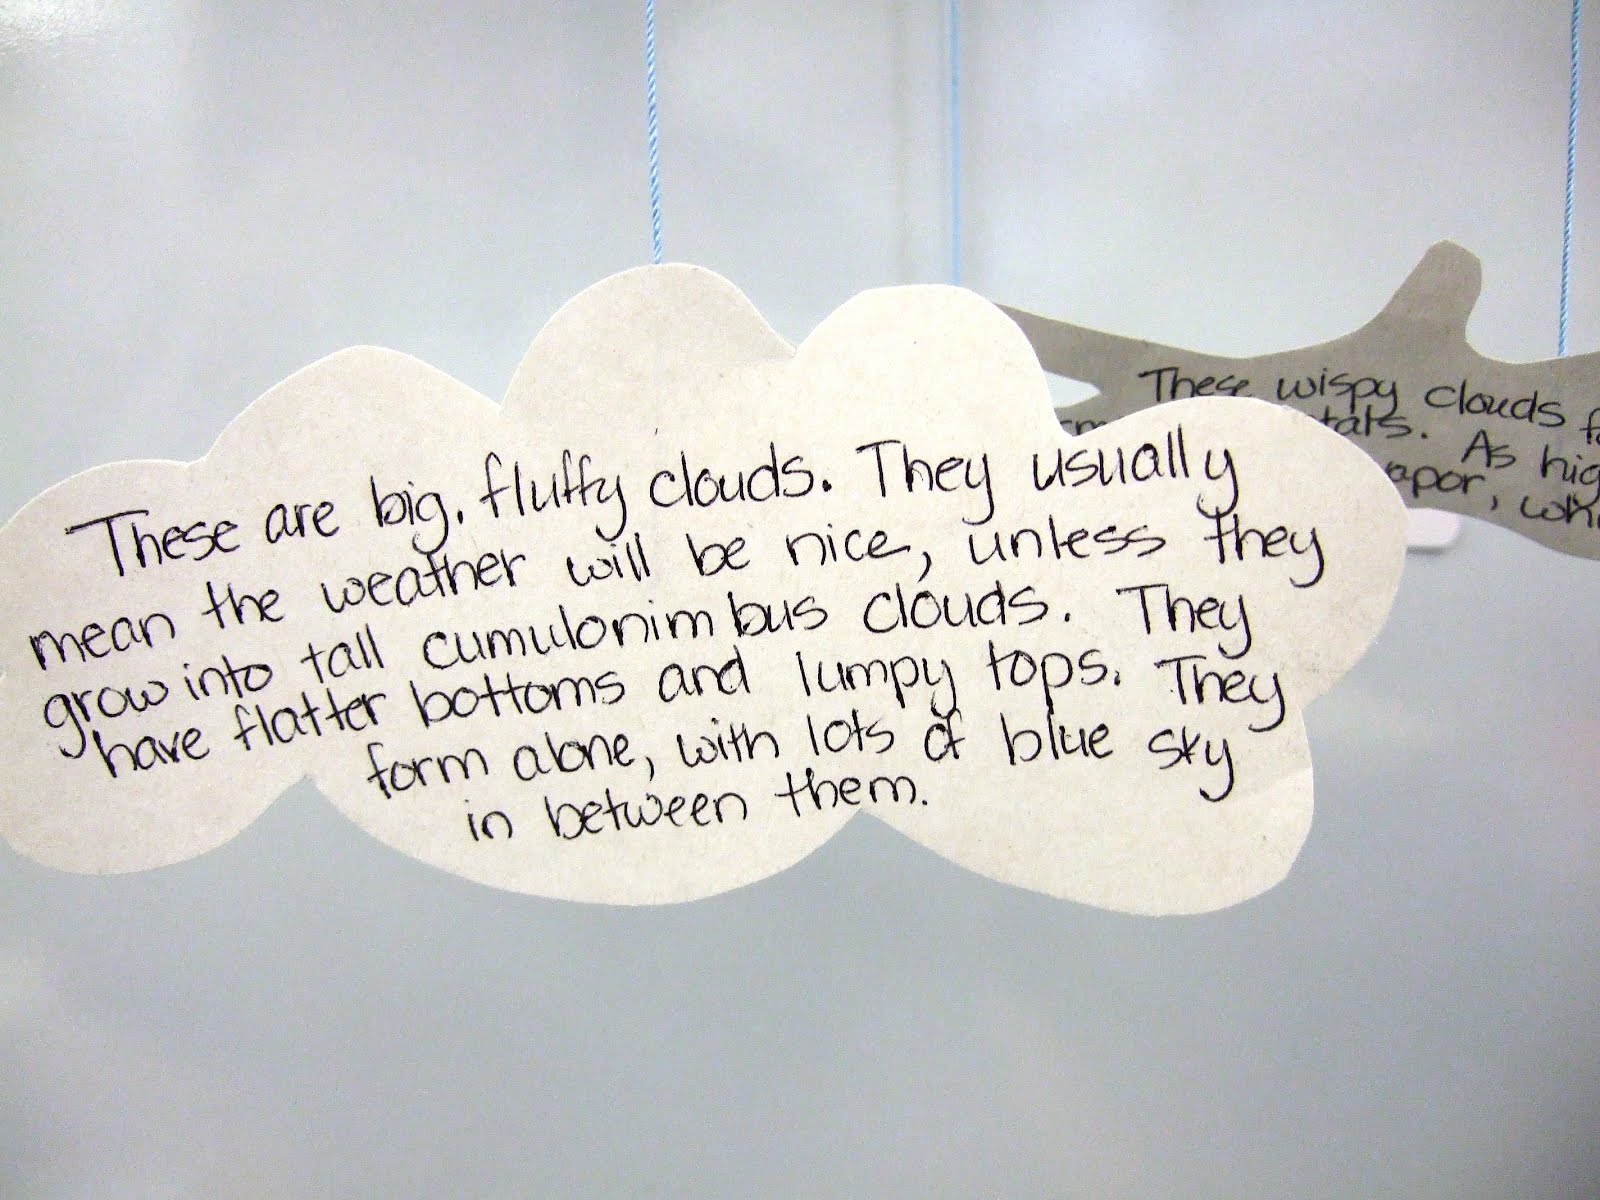 These are big, fluffy clouds. They usually
mean the weather will be nice, unless they
grow into tall cumulonimbus clouds. They
have flatter bottoms and lumpy tops. They
form alone, with lots of blue sky
in between them.
These wispy clouds
As